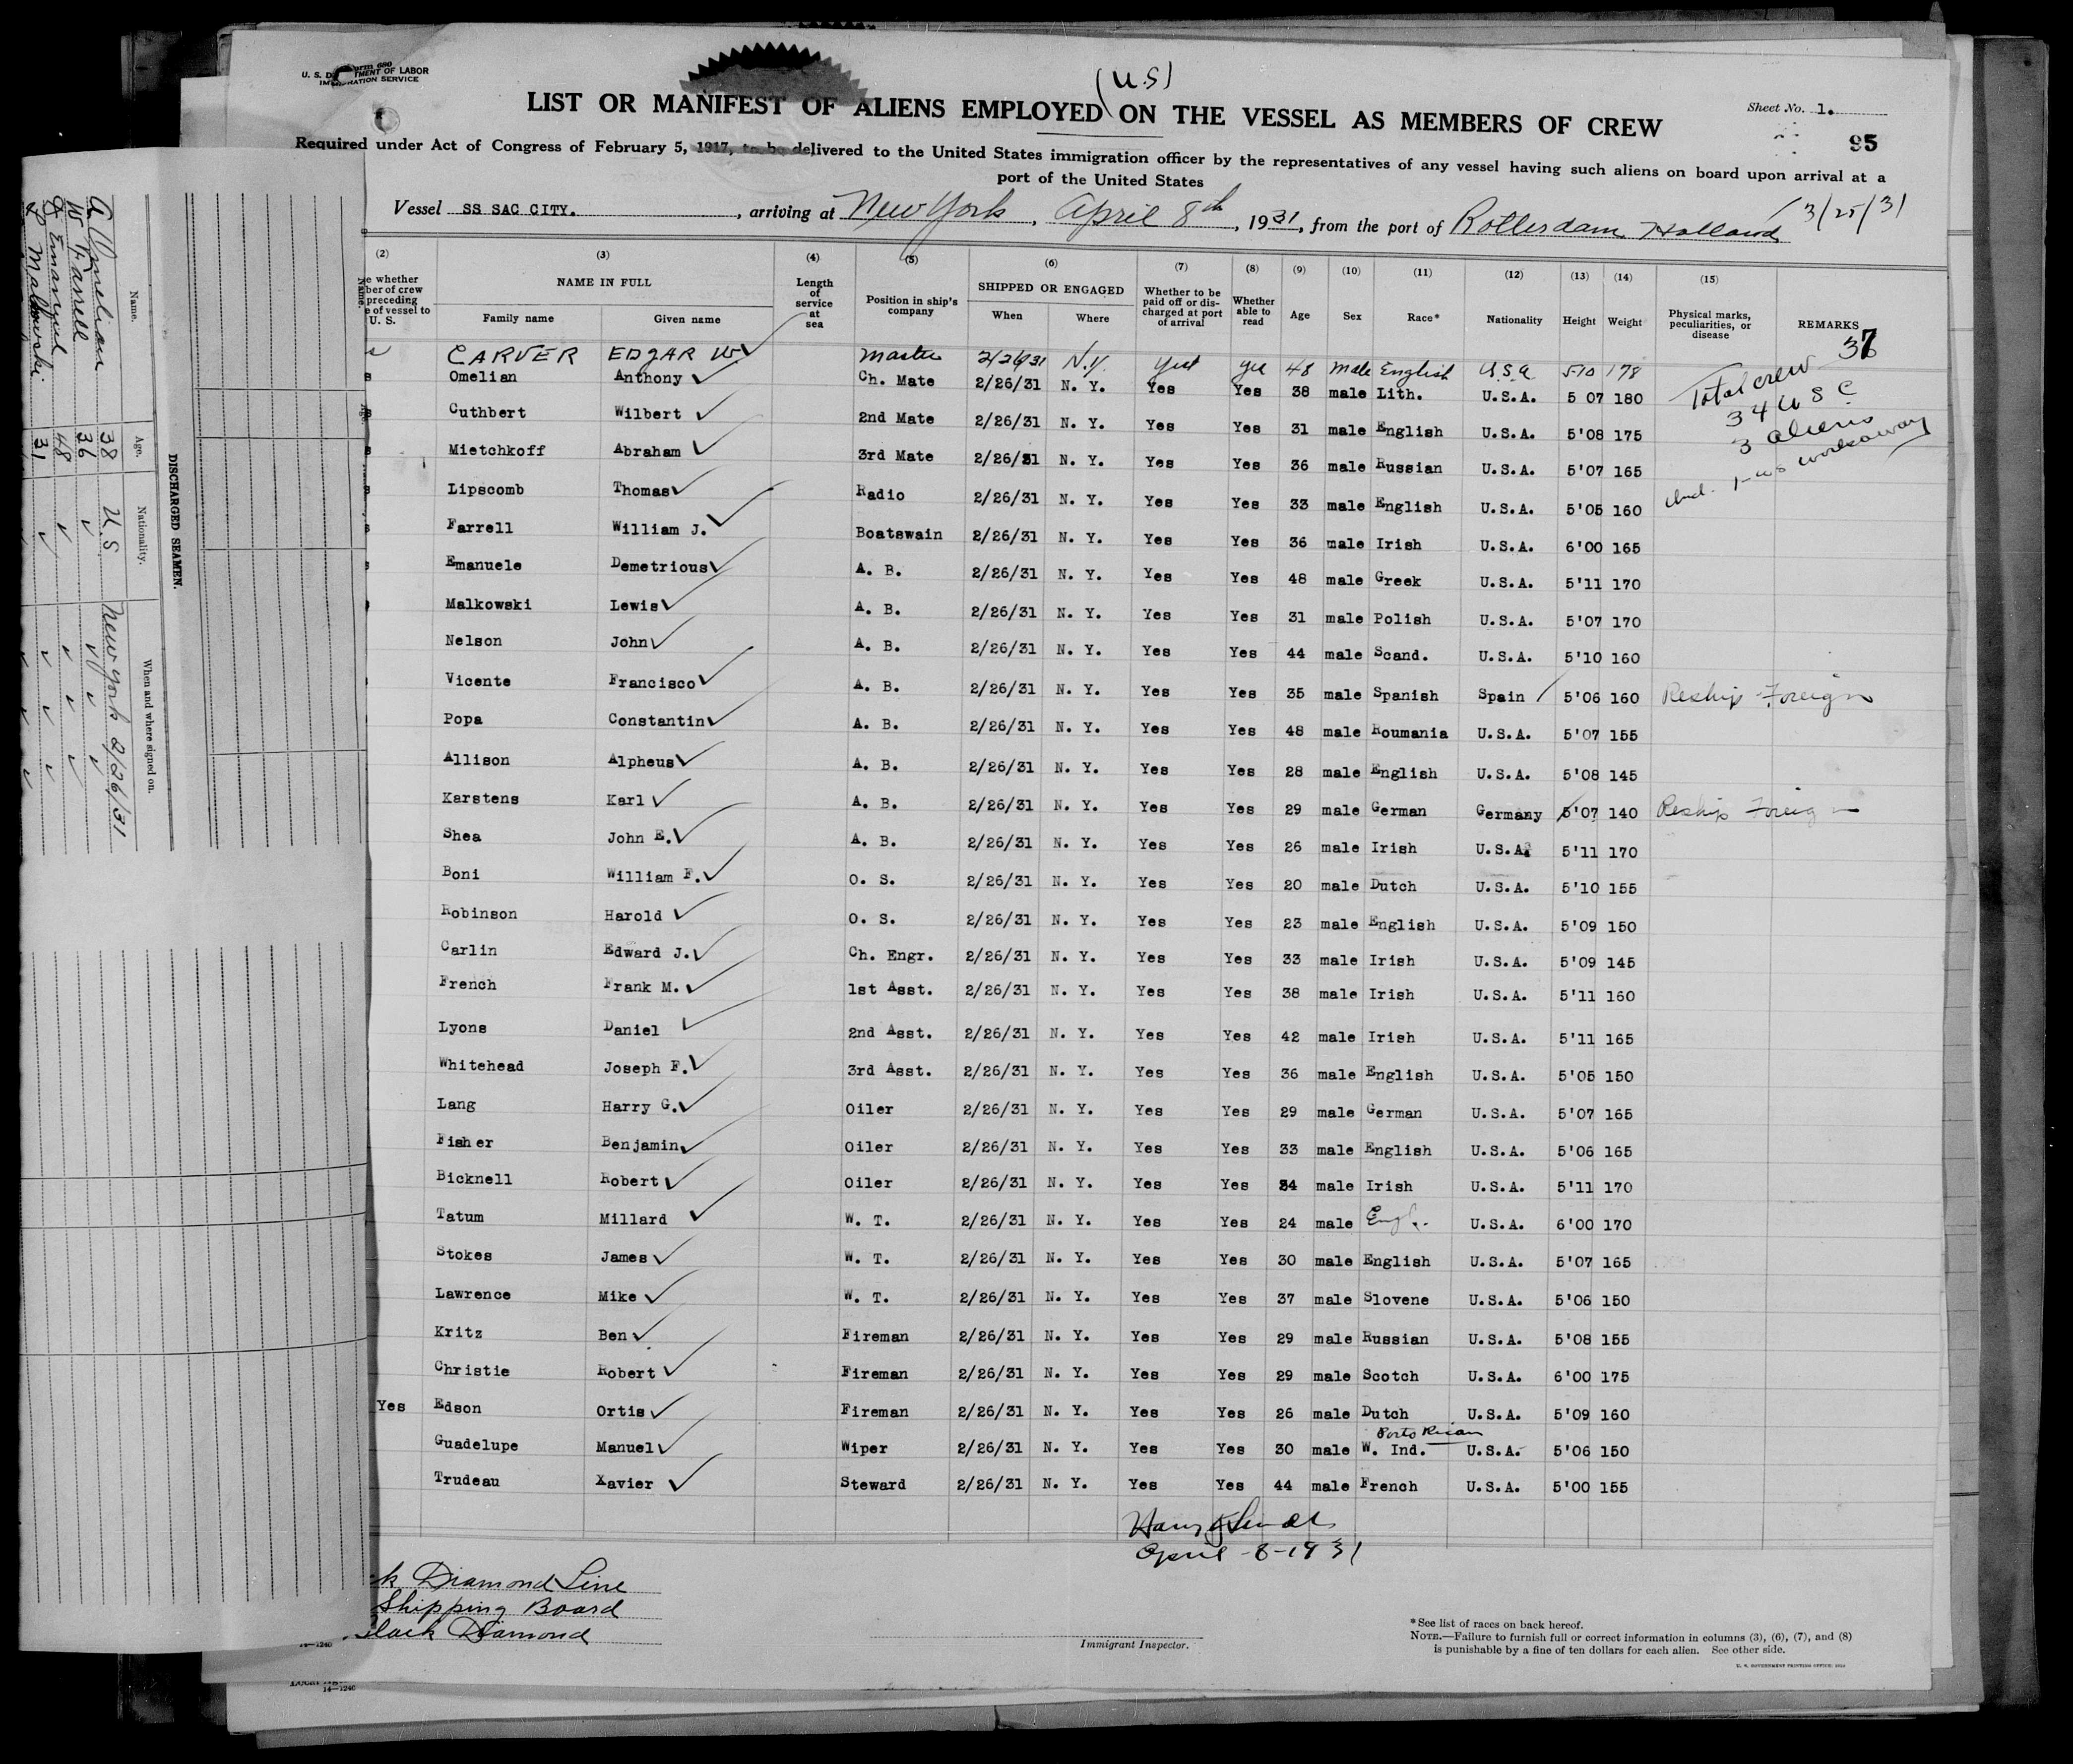 U. S. D TMENT OF LABOR
IMMIGRATION SERVICE
(U.S)
LIST OR MANIFEST OF ALIENS EMPLOYED ON THE VESSEL AS MEMBERS OF CREW
Sheet No. 1.
95
Required under Act of Congress of February 5, 1917, to be delivered to the United States immigration officer by the representatives of any vessel having such aliens on board upon arrival at a
port of the United States
Vessel SS SAC CITY. , arriving at New York , April 8th , 1931, from the port of Rotterdam Holland 3/25/31
(2) (3) (4) (5) (6) (7) (8) (9) (10) (11) (12) (13) (14) (15)
e whether ber of crew preceding e of vessel to U. S. NAME IN FULL Family name Given name Length of service at sea Position in ship's company SHIPPED OR ENGAGED When Where Whether to be paid off or discharged at port of arrival Whether able to read Age Sex Race* Nationality Height Weight Physical marks, peculiarities, or disease REMARKS
37
CARVER EDGAR W Master 2/26/31 N.Y. Yes Yes 48 male English U.S.A. 510 178
s Omelian Anthony Ch. Mate 2/26/31 N. Y. Yes Yes 38 male Lith. U.S.A. 5 07 180 Total crew
s Cuthbert Wilbert 2nd Mate 2/26/31 N. Y. Yes Yes 31 male English U.S.A. 5'08 175 34 U S C
3 aliens
s Mietchkoff Abraham 3rd Mate 2/26/31 N. Y. Yes Yes 36 male Russian U.S.A. 5'07 165
incl. 1-us workaway
s Lipscomb Thomas Radio 2/26/31 N. Y. Yes Yes 33 male English U.S.A. 5'05 160
s Farrell William J. Boatswain 2/26/31 N. Y. Yes Yes 36 male Irish U.S.A. 6'00 165
s Emanuele Demetrious A. B. 2/26/31 N. Y. Yes Yes 48 male Greek U.S.A. 5'11 170
Malkowski Lewis A. B. 2/26/31 N. Y. Yes Yes 31 male Polish U.S.A. 5'07 170
Nelson John A. B. 2/26/31 N. Y. Yes Yes 44 male Scand. U.S.A. 5'10 160
Vicente Francisco A. B. 2/26/31 N. Y. Yes Yes 35 male Spanish Spain 5'06 160 Reship Foreign
Popa Constantin A. B. 2/26/31 N. Y. Yes Yes 48 male Roumania U.S.A. 5'07 155
Allison Alpheus A. B. 2/26/31 N. Y. Yes Yes 28 male English U.S.A. 5'08 145
Karstens Karl A. B. 2/26/31 N. Y. Yes Yes 29 male German Germany 5'07 140 Reship Foreign
Shea John E. A. B. 2/26/31 N. Y. Yes Yes 26 male Irish U.S.A. 5'11 170
Boni William F. O. S. 2/26/31 N. Y. Yes Yes 20 male Dutch U.S.A. 5'10 155
Robinson Harold O. S. 2/26/31 N. Y. Yes Yes 23 male English U.S.A. 5'09 150
Carlin Edward J. Ch. Engr. 2/26/31 N. Y. Yes Yes 33 male Irish U.S.A. 5'09 145
French Frank M. 1st Asst. 2/26/31 N. Y. Yes Yes 38 male Irish U.S.A. 5'11 160
Lyons Daniel 2nd Asst. 2/26/31 N. Y. Yes Yes 42 male Irish U.S.A. 5'11 165
Whitehead Joseph F. 3rd Asst. 2/26/31 N. Y. Yes Yes 36 male English U.S.A. 5'05 150
Lang Harry G. Oiler 2/26/31 N. Y. Yes Yes 29 male German U.S.A. 5'07 165
Fisher Benjamin Oiler 2/26/31 N. Y. Yes Yes 33 male English U.S.A. 5'06 165
Bicknell Robert Oiler 2/26/31 N. Y. Yes Yes 34 male Irish U.S.A. 5'11 170
Tatum Millard W. T. 2/26/31 N. Y. Yes Yes 24 male Engl. U.S.A. 6'00 170
Stokes James W. T. 2/26/31 N. Y. Yes Yes 30 male English U.S.A. 5'07 165
Lawrence Mike W. T. 2/26/31 N. Y. Yes Yes 37 male Slovene U.S.A. 5'06 150
Kritz Ben Fireman 2/26/31 N. Y. Yes Yes 29 male Russian U.S.A. 5'08 155
Christie Robert Fireman 2/26/31 N. Y. Yes Yes 29 male Scotch U.S.A. 6'00 175
Yes Edson Ortis Fireman 2/26/31 N. Y. Yes Yes 26 male Dutch U.S.A. 5'09 160
Porto Rican
Guadelupe Manuel Wiper 2/26/31 N. Y. Yes Yes 30 male W. Ind. U.S.A. 5'06 150
Trudeau Xavier Steward 2/26/31 N. Y. Yes Yes 44 male French U.S.A. 5'00 155
April-8-1931
k Diamond Line
Shipping Board
Black Diamond
Immigrant Inspector.
*See list of races on back hereof.
NOTE.—Failure to furnish full or correct information in columns (3), (6), (7), and (8)
is punishable by a fine of ten dollars for each alien. See other side.
U. S. GOVERNMENT PRINTING OFFICE
14—1240
14—1240
DISCHARGED SEAMEN.
Name. Age. Nationality. When and where signed on.
A Omelian 38 U.S New York 2/26/31
W Farrell 36
Emanuel 48
L Malkowski 31